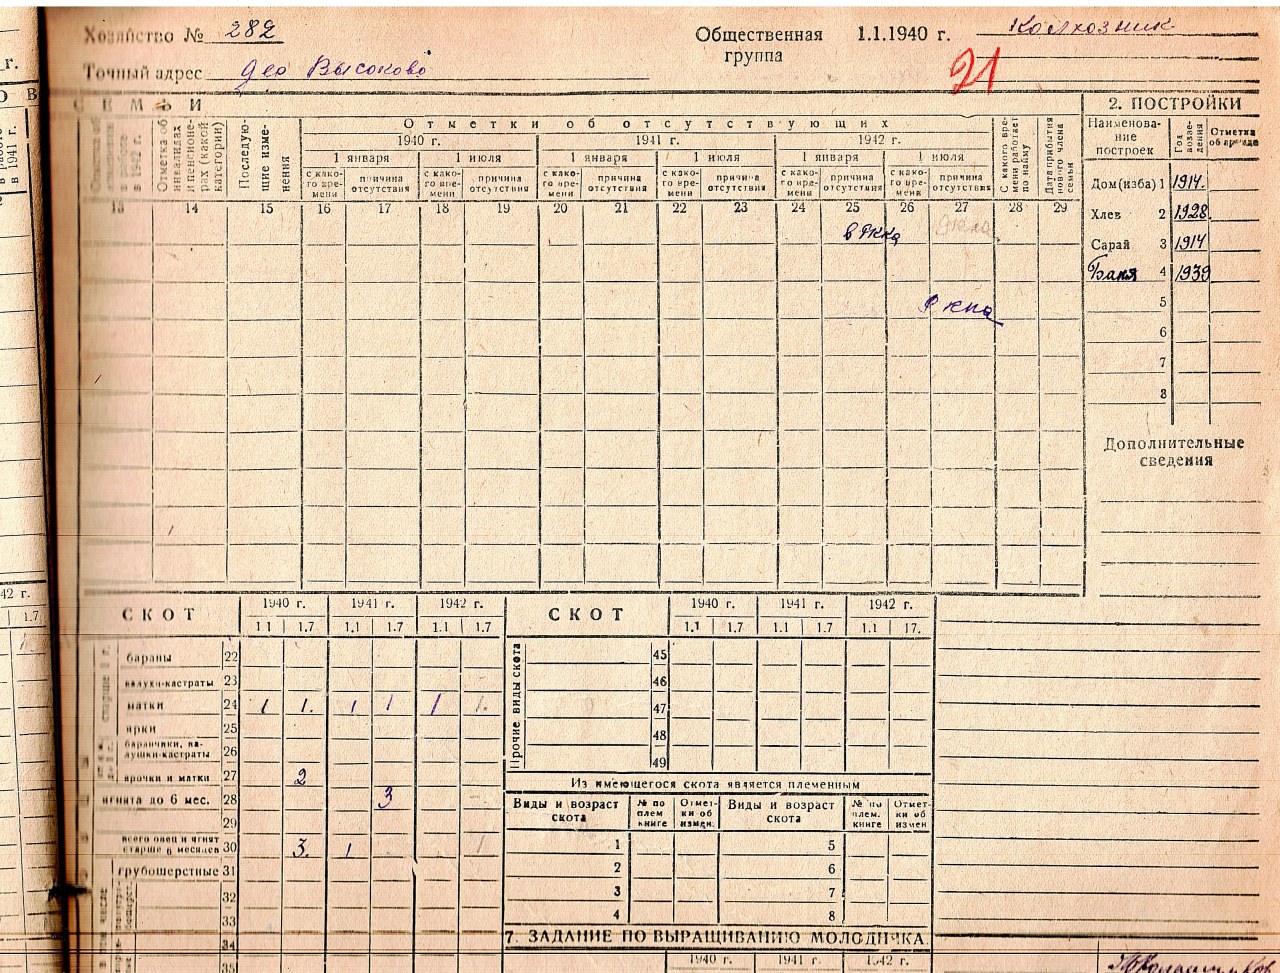 Хозяйство № 282
Общественная группа 1.1.1940 г. Колхозник
Точный адрес дер Высоково
21
СЕМЬИ
2. ПОСТРОЙКИ
Отметки об отсутствующих
1940 г. 1941 г. 1942 г.
1 января 1 июля 1 января 1 июля 1 января 1 июля
Отметка об инвалидах и пенсионерах (какой категории)
Последующие изменения
с какого времени причина отсутствия с какого времени причина отсутствия с какого времени причина отсутствия с какого времени причина отсутствия с какого времени причина отсутствия с какого времени причина отсутствия
С какого времени работает по найму
Дата прибытия нового члена семьи
Наименование построек Год возведения
13 14 15 16 17 18 19 20 21 22 23 24 25 26 27 28 29
в Ркка
Ркка
Дом (изба) 1 1914.
Хлев 2 1928.
Сарай 3 1914
Баня 4 1939
5
6
7
8
Дополнительные
сведения
42 г.
1.7
СКОТ 1940 г. 1941 г. 1942 г.
1.1 1.7 1.1 1.7 1.1 1.7
бараны 22
валухи-кастраты 23
матки 24 1 1. 1 1 1 1.
ярки 25
баранчики, валушки-кастраты 26
ярочки и матки 27 2
ягнята до 6 мес. 28 3
29
всего овец и ягнят старше 6 месяцев 30 3. 1 1
грубошерстные 31
32
33
34
35
СКОТ 1940 г. 1941 г. 1942 г.
1.1 1.7 1.1 1.7 1.1 17.
Прочие виды скота
45
46
47
48
49
Из имеющегося скота является племенным
Виды и возраст скота № по плем книге Отметки об измен. Виды и возраст скота № по плем. книге Отметки об измен
1 5
2 6
3 7
4 8
7. ЗАДАНИЕ ПО ВЫРАЩИВАНИЮ МОЛОДНЯКА.
1940 г. 1941 г. 1942 г.